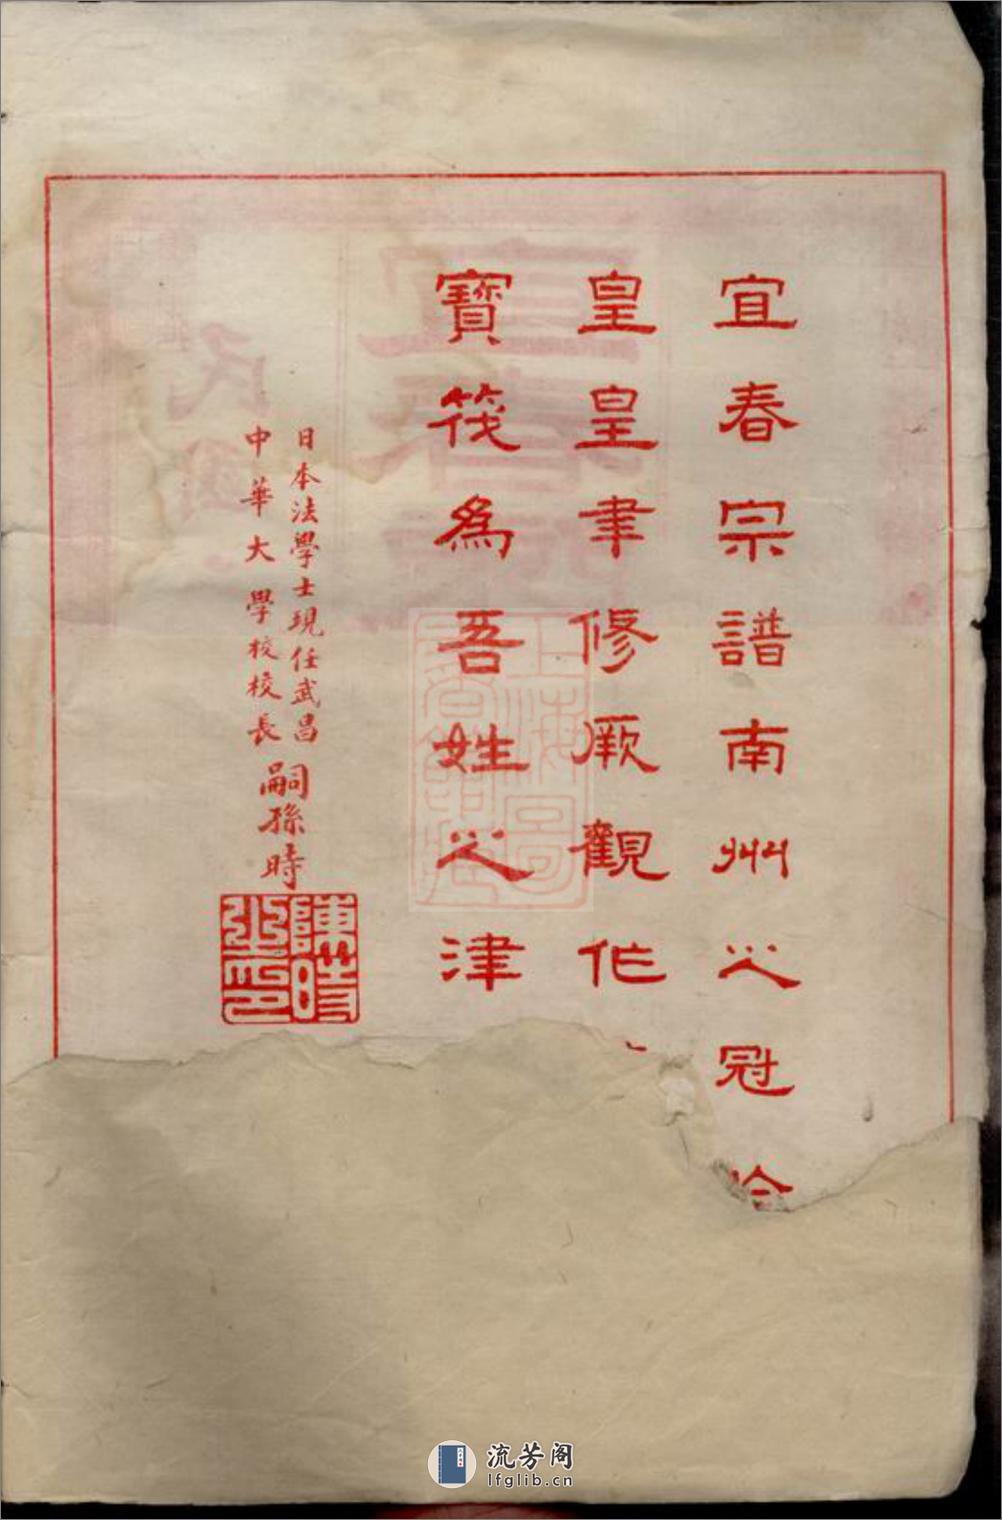 宜春宗譜南州之冠
皇皇聿修厥觀作
寶筏為吾姓之津
日本法學士現任武昌
中華大學校校長
嗣孫時
陳時之印
上海圖書館藏
流芳阁
lfglib.cn